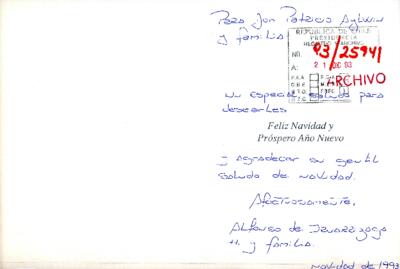 Para Don Patricio Aylwin
y familia
REPUBLICA DE CHILE
PRESIDENCIA
REGISTRO Y ARCHIVO
NR. 93/25941
A: 21 DIC 93
P.A.A.
C.B.E.
M.T.O.
ARCHIVO
un especial saludo para
desearles
Feliz Navidad y
Próspero Año Nuevo
y agradecer su gentil
saludo de navidad.
Afectuosamente,
Alfonso de
H. y familia.
navidad de 1993